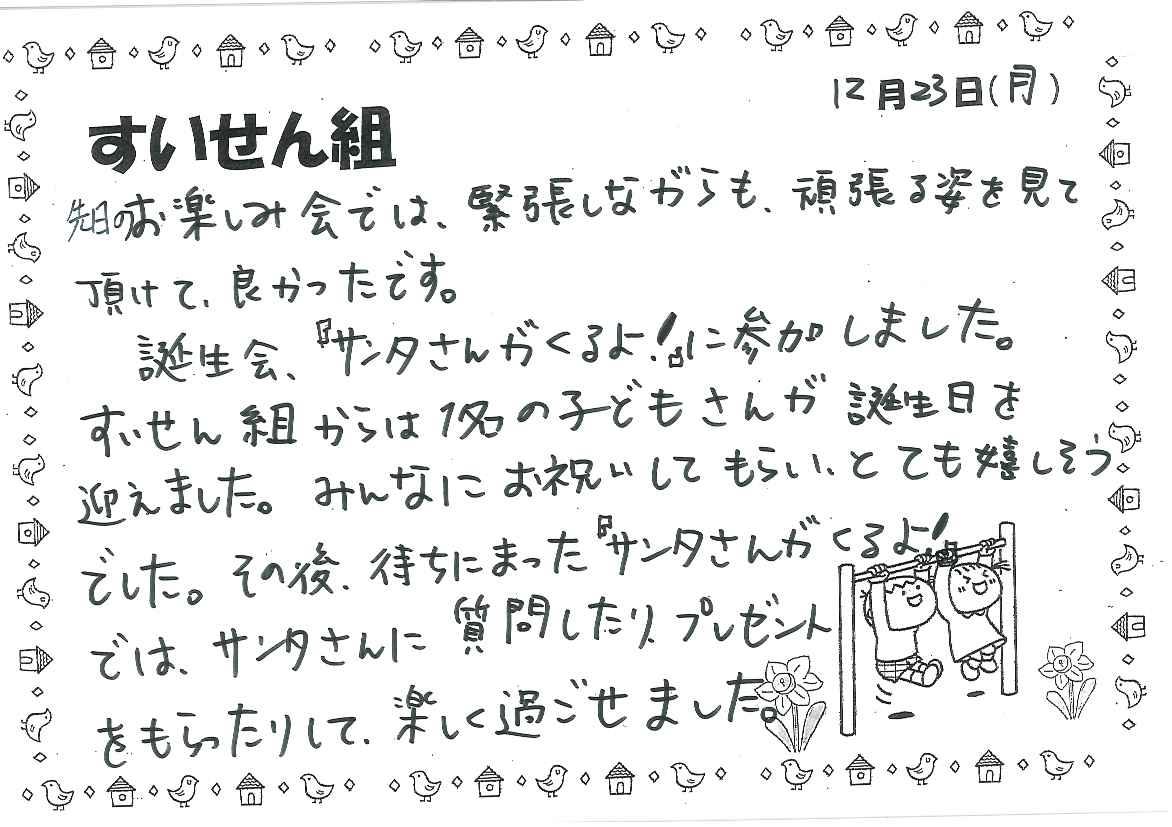 12月23日(月)
すいせん組
先日のお楽しみ会では、緊張しながらも、頑張る姿を見て
頂けて、良かったです。
誕生会、『サンタさんがくるよ!』に参加しました。
すいせん組からは1名の子どもさんが誕生日を
迎えました。みんなにお祝いしてもらい、とても嬉しそう
でした。その後、待ちにまった『サンタさんがくるよ!』
では、サンタさんに質問したり、プレゼント
をもらったりして、楽しく過ごせました。